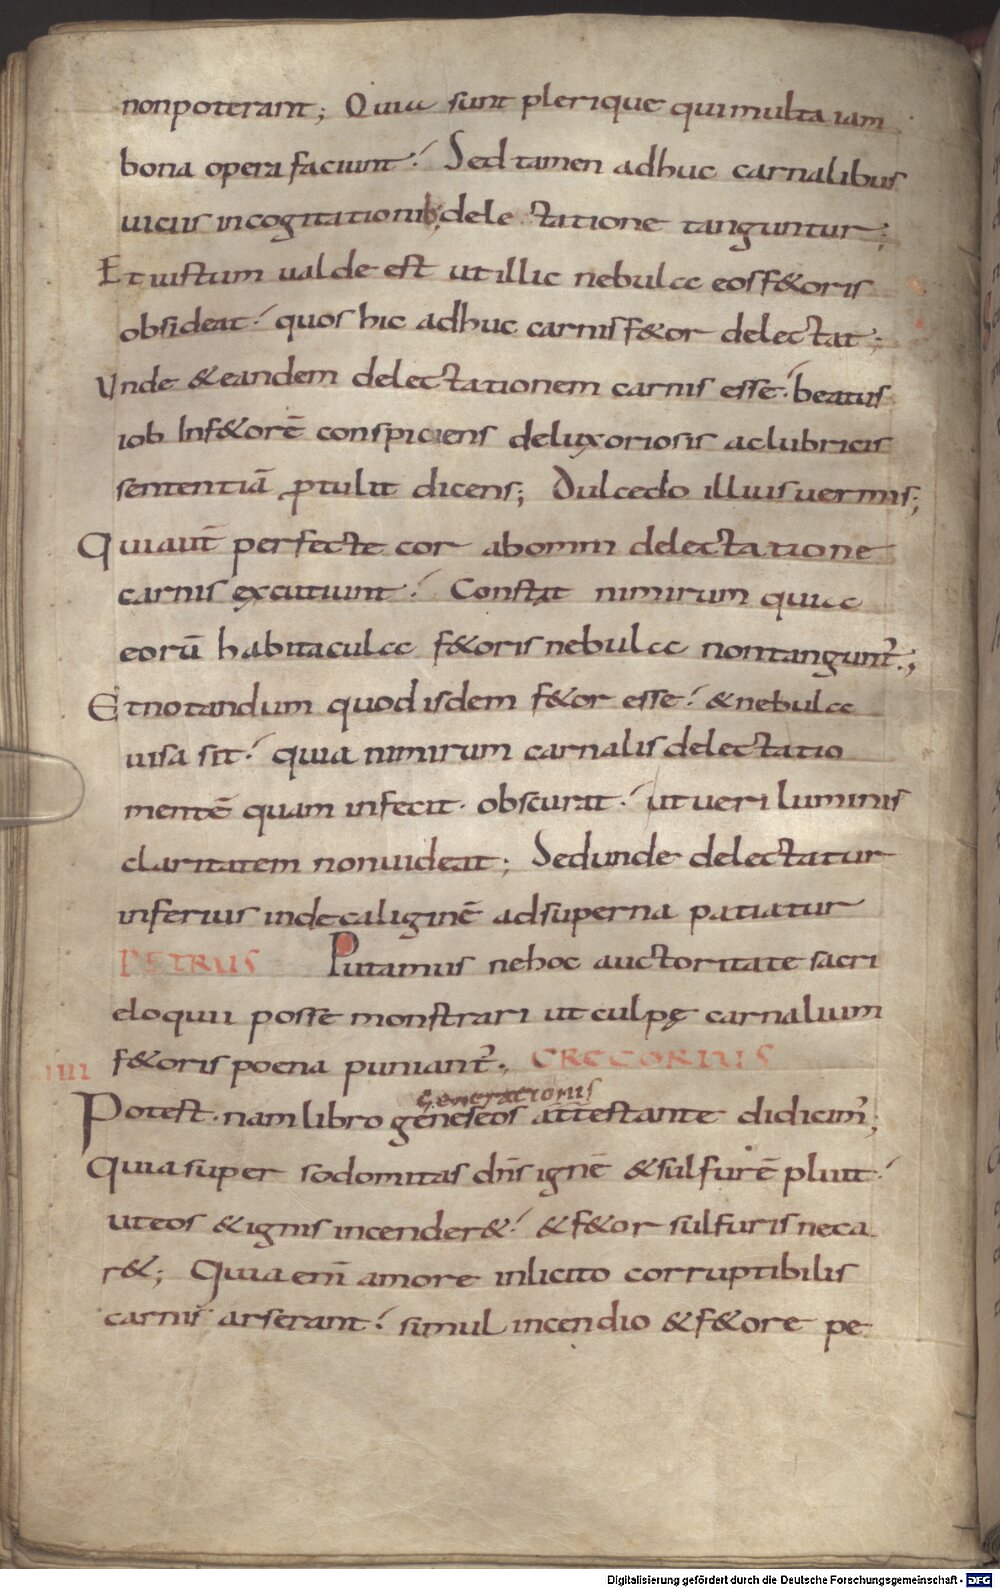 nonpoterant; Quia sunt plerique quimulta iam
bona opera faciunt. Sed tamen adhuc carnalibus
uiciis incogitationib; dele ctatione tanguntur;
Et iustum ualde est ut illic nebulae eosf&oris
obsideat. quos hic adhuc carnisf&or delectat;
Unde &eandem delectationem carnis esse. beatus
iob Inf&orē conspiciens deluxoriosis aclubricis
sententiā ꝓtulit dicens; Dulcedo illius uermis;
Quiaut̄ perfecte cor abomni delectatione
carnis excutiunt. Constat nimirum quiae
eorū habitaculae f&oris nebulae nontangunt᷑.,
Etnotandum quod isdem f&or esse. &nebulae
uisa sit. quia nimirum carnalis delectatio
mentē quam infecit. obscurat. ut ueri luminis
claritatem nonuideat; Sedunde delectatur
inferius inde caliginē adsuperna patiatur
PETRUS Putamus nehoc auctoritate sacri
eloquii posse monstrari ut culpę carnalium
f&oris poena puniant᷑., GREGORIUS
IIII
generationis
Potest. nam libro geneseos attestante didicim᷑;
Quia super sodomitas dn̄s ignē &sulfurē pluit.
uteos &ignis incender&. &f&or sulfuris neca
r&; Quia eni̅ amore inlicito corruptibilis
carnis arserant. simul incendio &f&ore pe
Digitalisierung gefördert durch die Deutsche Forschungsgemeinschaft - DFG